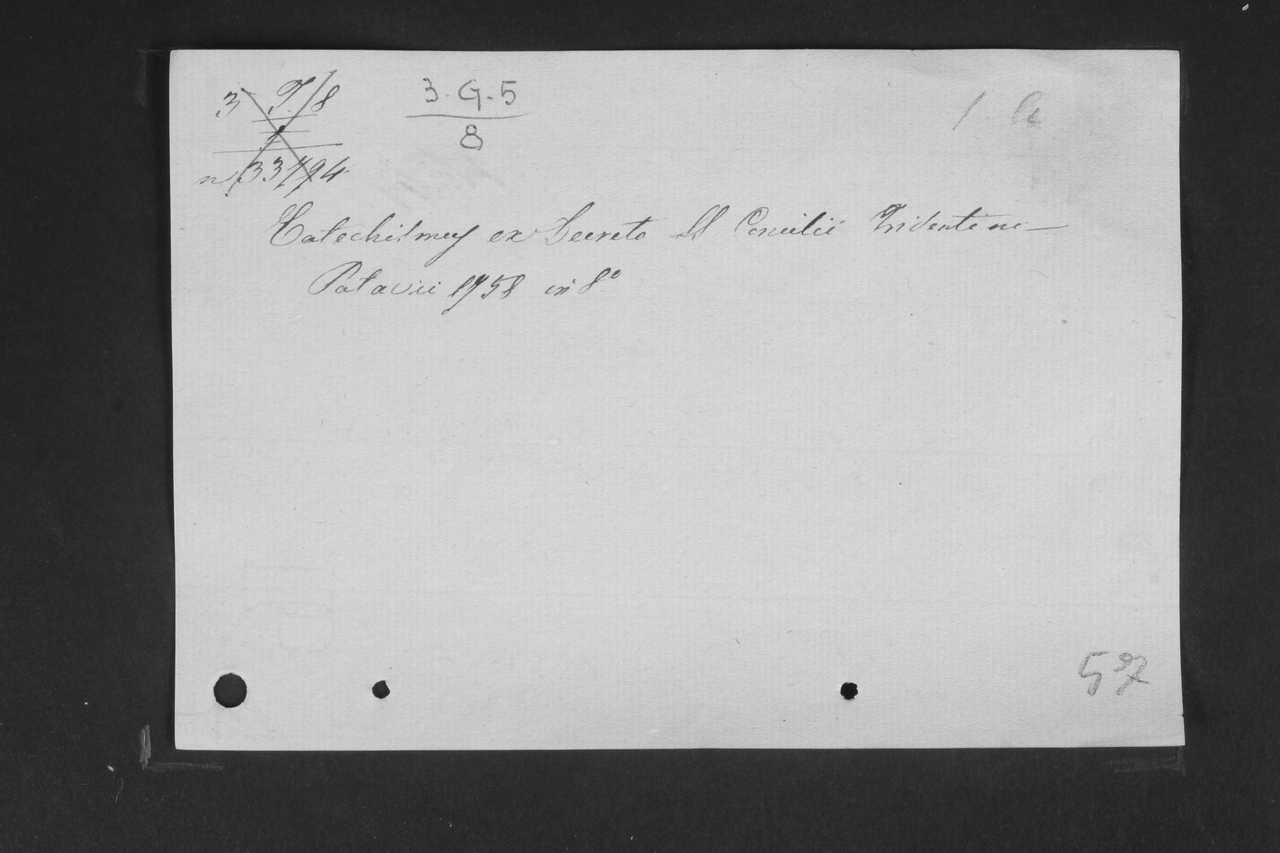 3. G. 5
8
n 33794
Catechismus ex Decreto SS Concilii Tridentini
Patavii 1758 in 8º
597